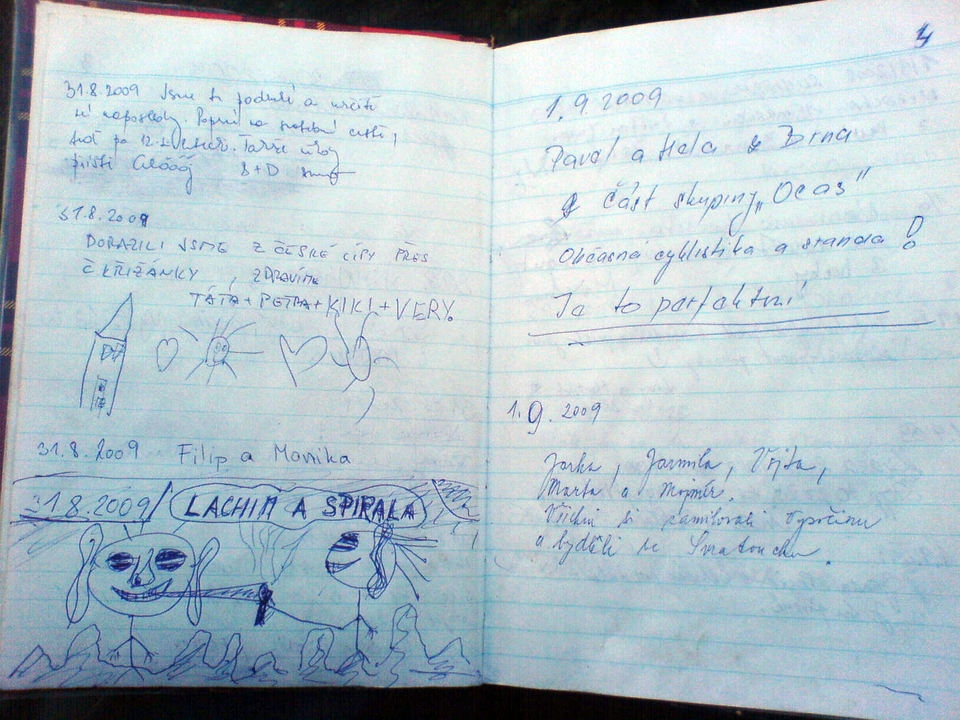 31.8.2009 Jsme tu podruhé a určitě
ne naposledy. Poprvé na
též po 12. Takže
příště Čááááj B+D
31.8.2009
DORAZILI JSME Z ČESKÉ LÍPY PŘES
ČKŘIŽÁNKY, ZDRAVÍME
TÁTA + PETRA + KIKI + VERY.
31.8.2009 Filip a Monika
31.8.2009/ LACHIM A SPIRALA
4
1.9.2009
Pavel a Hela z Brna
část skupiny „Ocas"
Občasná cyklistika a sranda!
Je to perfektní
1.9.2009
Jarka, Jarmila, Vojta,
Marta a Mojmír.
Všichni si zamilovali Vysočinu
a bydleli ve Svratouchu.